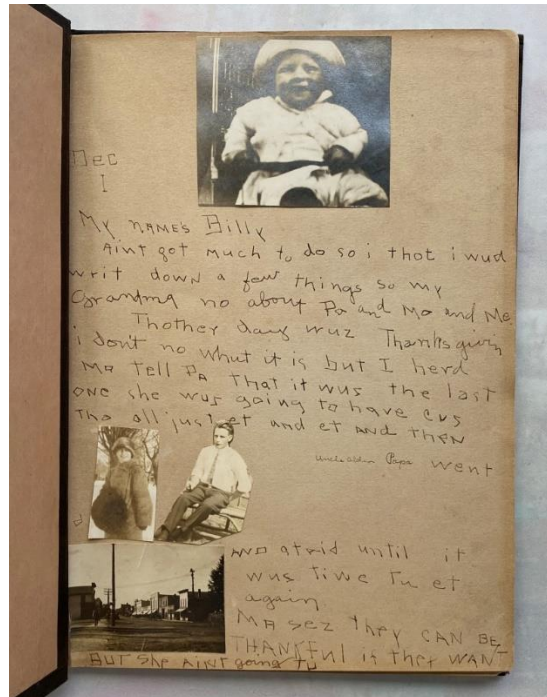 Dec
I
My NAMES Billy
Aint got much to do so i thot i wud
writ down a few things so my
Grandma no about Pa and Ma and Me
Thother day wuz Thanksgivin
i dont no whut it is but I herd
Ma tell Pa that it wus the last
one she wus going to have cus
tha all just et and et and then
Uncle Alden Papa went
AND
until it
wus time tu et
again
MA sez they CAN BE
THANKful if they WANT
BUT She AINT going Tu